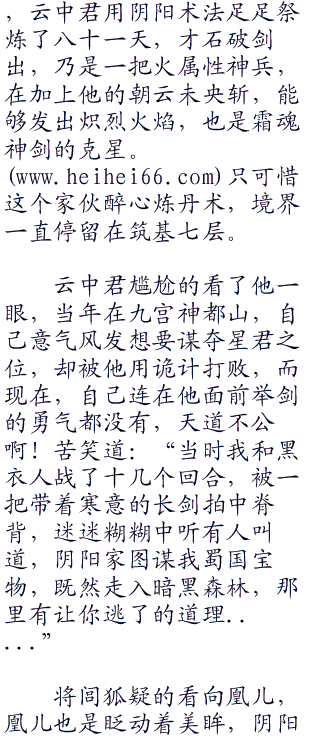 ，云中君用阴阳术法足足祭
炼了八十一天，才石破剑
出，乃是一把火属性神兵，
在加上他的朝云未央斩，能
够发出炽烈火焰，也是霜魂
神剑的克星。
(www.heihei66.com)只可惜
这个家伙醉心炼丹术，境界
一直停留在筑基七层。
云中君尴尬的看了他一
眼，当年在九宫神都山，自
己意气风发想要谋夺星君之
位，却被他用诡计打败，而
现在，自己连在他面前举剑
的勇气都没有，天道不公
啊！苦笑道：“当时我和黑
衣人战了十几个回合，被一
把带着寒意的长剑拍中脊
背，迷迷糊糊中听有人叫
道，阴阳家图谋我蜀国宝
物，既然走入暗黑森林，那
里有让你逃了的道理..
...”
将闾狐疑的看向凰儿，
凰儿也是眨动着美眸，阴阳